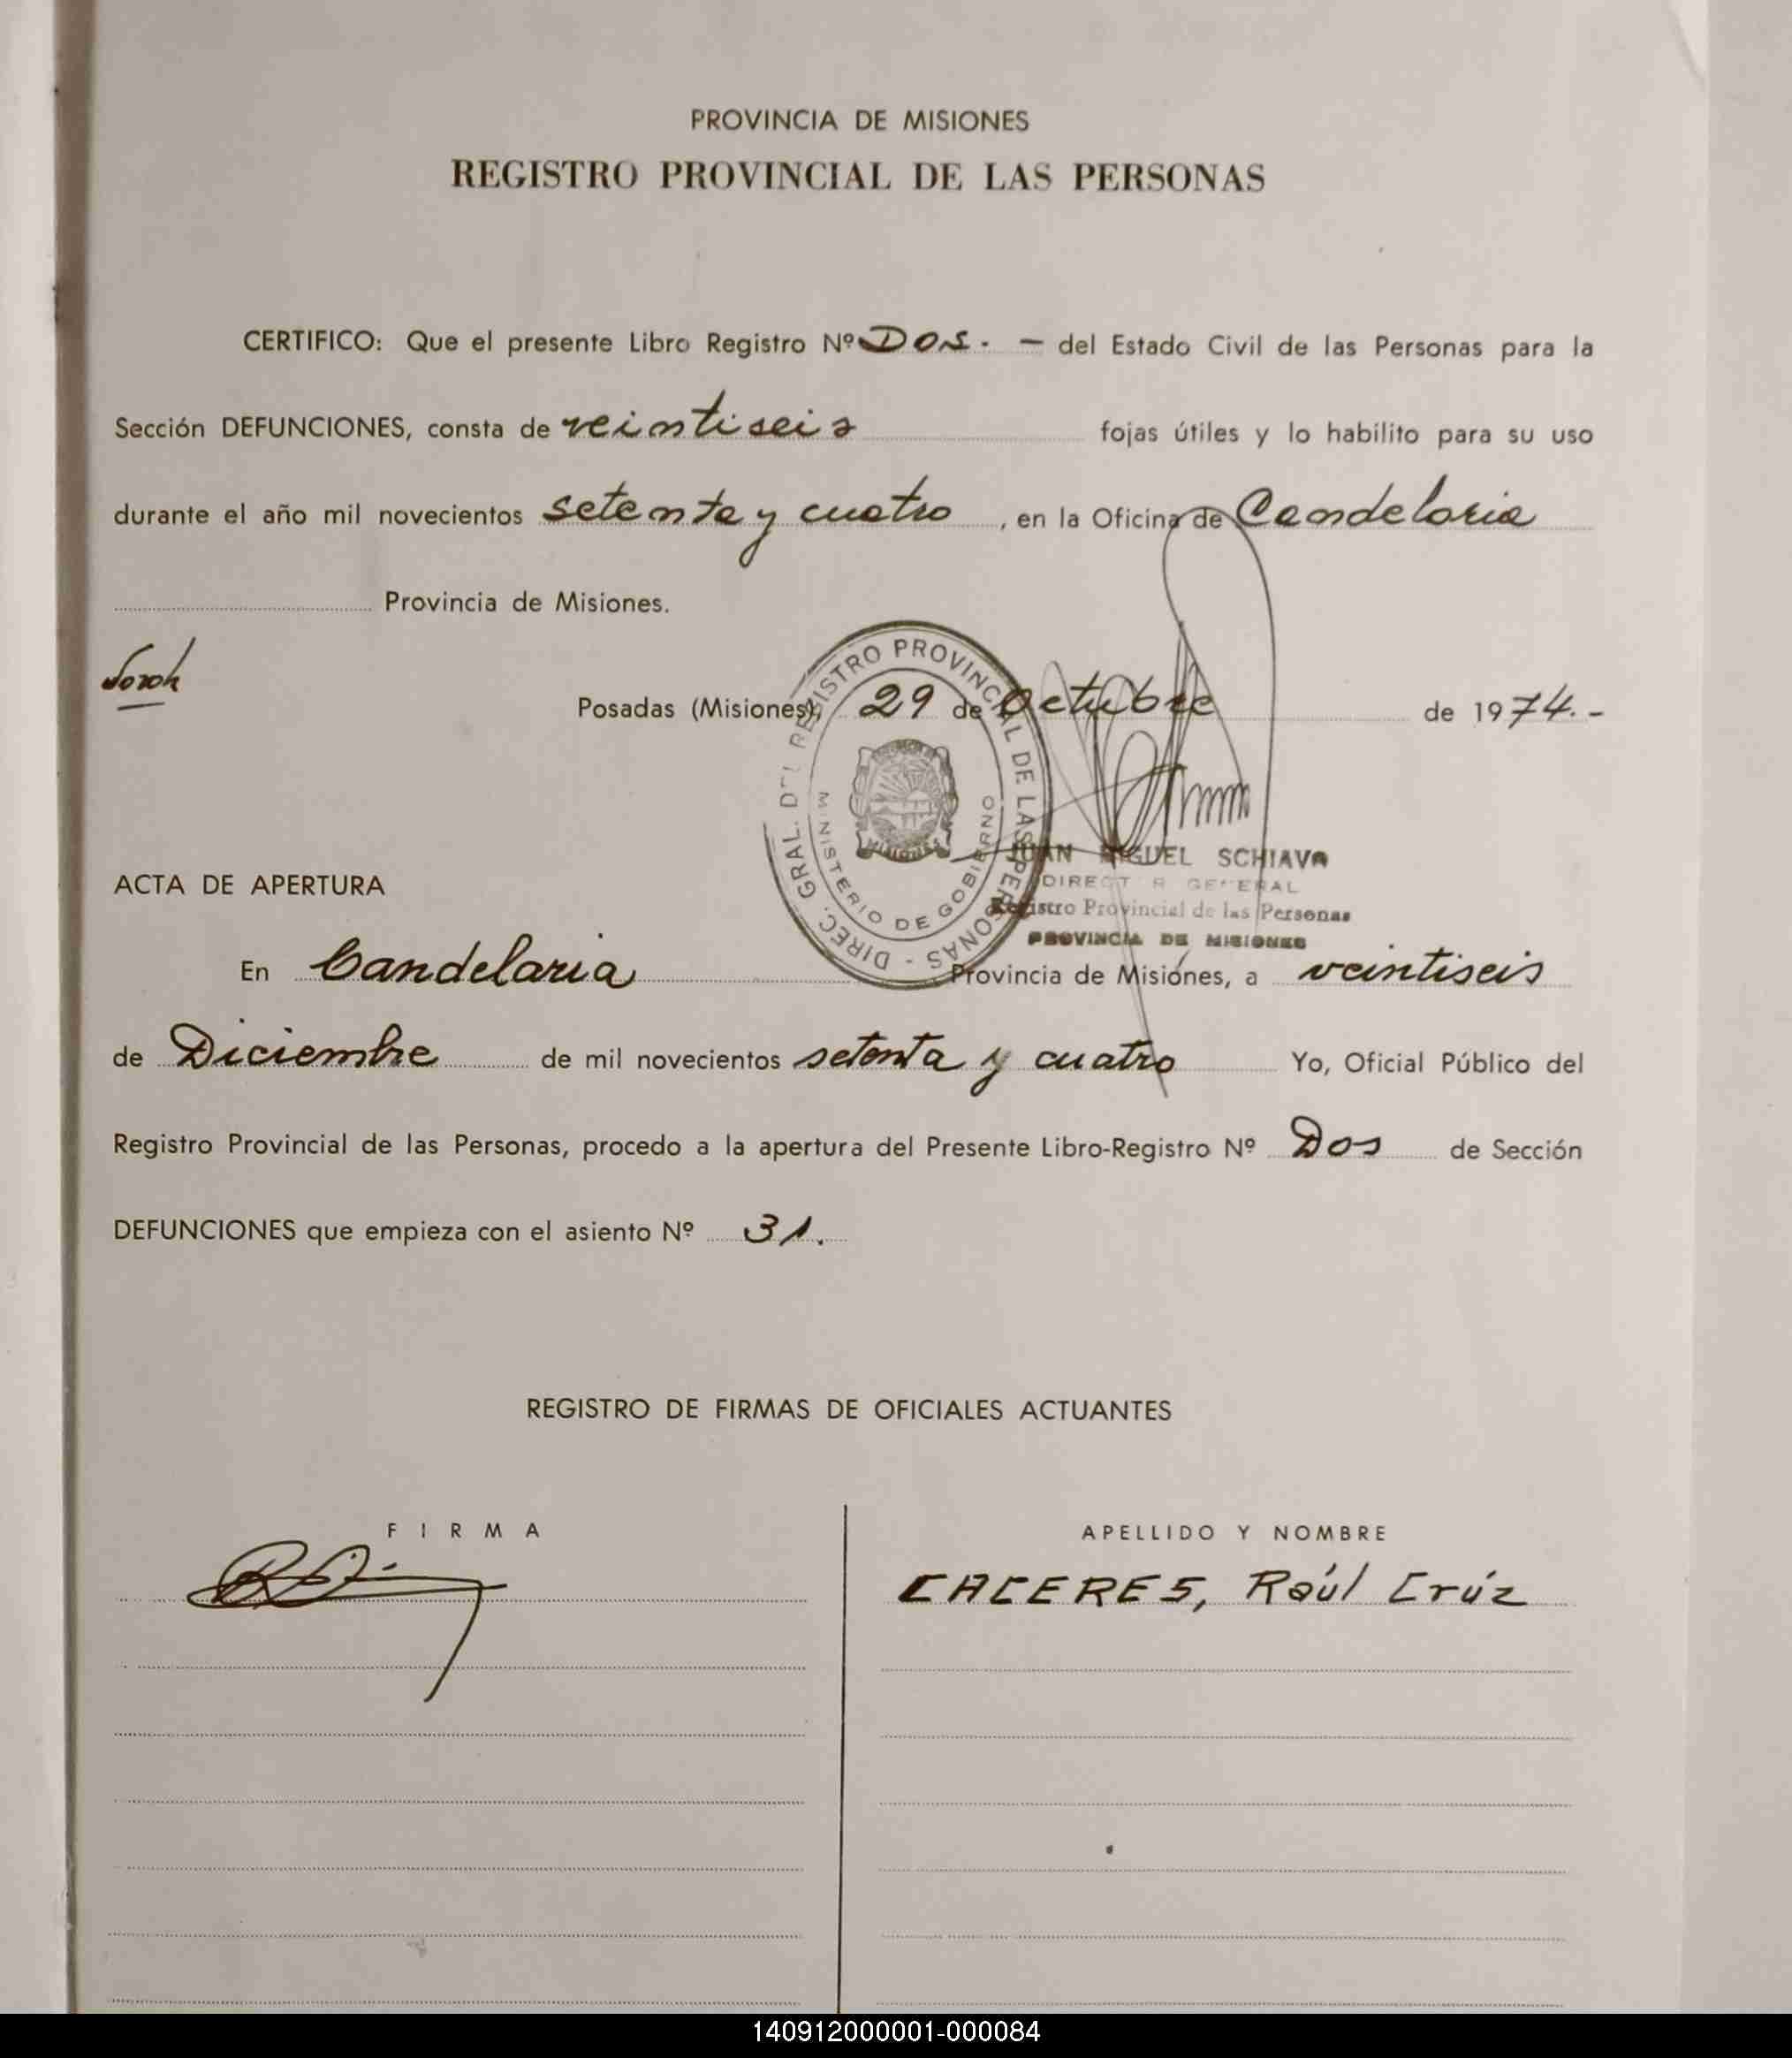 PROVINCIA DE MISIONES
REGISTRO PROVINCIAL DE LAS PERSONAS
CERTIFICO: Que el presente Libro Registro Nº Dos. — del Estado Civil de las Personas para la
Sección DEFUNCIONES, consta de veintiseis fojas útiles y lo habilito para su uso
durante el año mil novecientos setenta y cuatro, en la Oficina de Candelaria
Provincia de Misiones.
Posadas (Misiones), 29 de Octubre de 1974.-
DIREC. GRAL. DEL REGISTRO PROVINCIAL DE LAS PERSONAS -
MINISTERIO DE GOBIERNO
MISIONES
JUAN MIGUEL SCHIAVO
DIRECTOR GENERAL
Registro Provincial de las Personas
PROVINCIA DE MISIONES
ACTA DE APERTURA
En Candelaria Provincia de Misiónes, a veintiseis
de Diciembre de mil novecientos setenta y cuatro Yo, Oficial Público del
Registro Provincial de las Personas, procedo a la apertura del Presente Libro-Registro Nº Dos de Sección
DEFUNCIONES que empieza con el asiento Nº 31.
REGISTRO DE FIRMAS DE OFICIALES ACTUANTES
FIRMA
APELLIDO Y NOMBRE
CACERES, Raúl Crúz
140912000001-000084